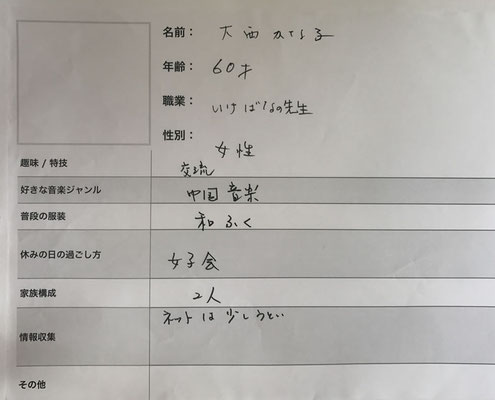 名前： 大西かなる子
年齢： 60才
職業： いけばなの先生
性別： 女性
趣味 / 特技 交流
好きな音楽ジャンル 中国音楽
普段の服装 和ふく
休みの日の過ごし方 女子会
家族構成 2人
情報収集 ネットは少しうとい
その他